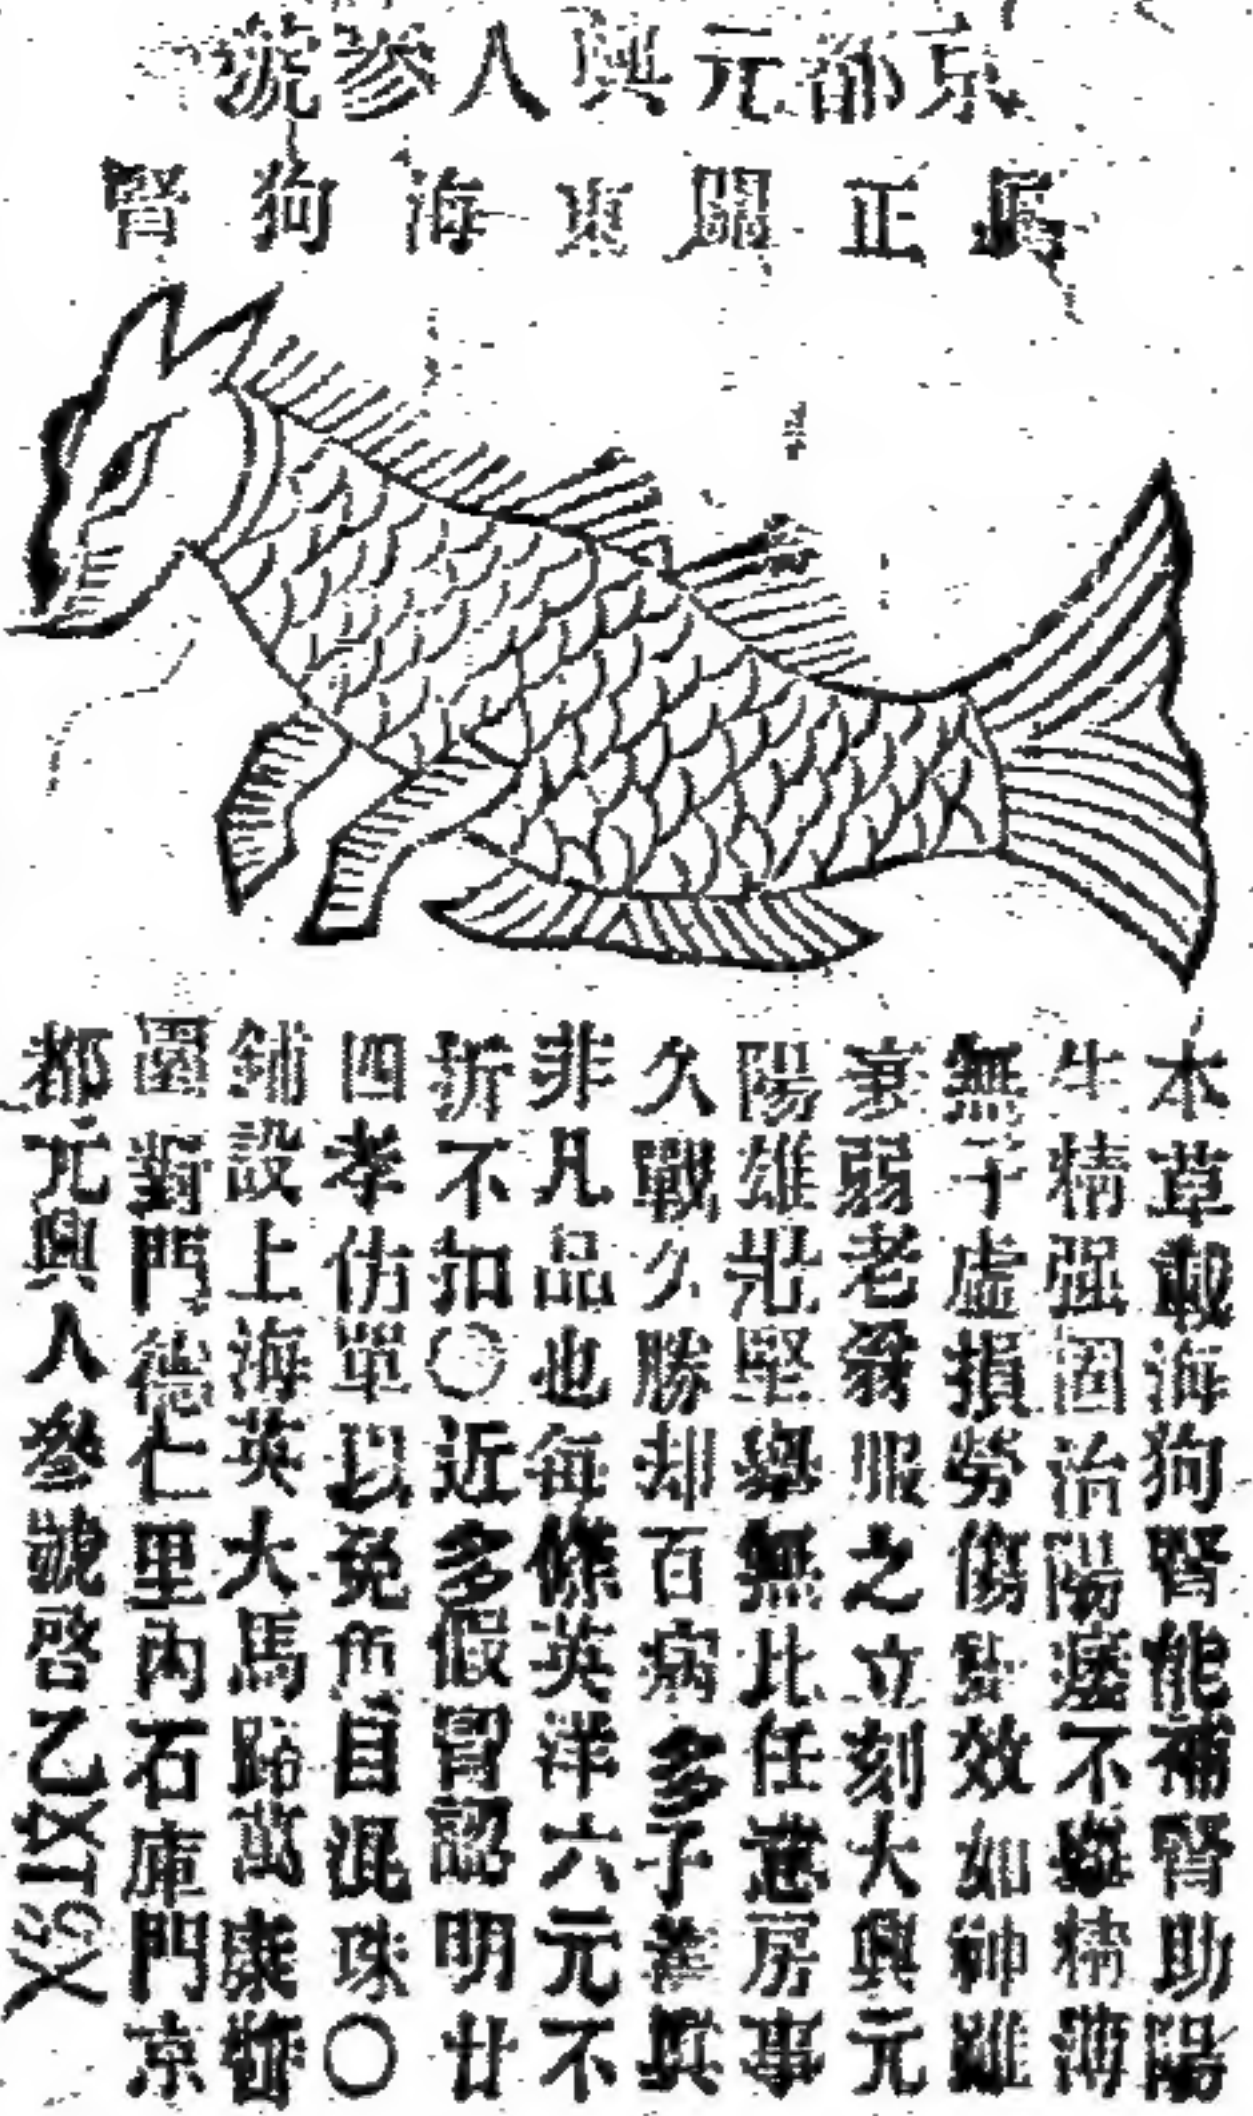 京都元興人參號
真正關東海狗腎
本草載海狗腎能補腎助陽
生精强固治陽痿不舉精薄
無子虛損勞傷功效如神雖
衰弱老翁服之立刻大興元
陽雄壯堅舉無比任意房事
久戰久勝却百病多子孫真
非凡品也每條英洋六元不
折不扣〇近多假冐認明廿
四孝仿單以免魚目混珠〇
鋪設上海英大馬路萬康醬
園對門德仁里內石庫門京
都元興人參號啓乙